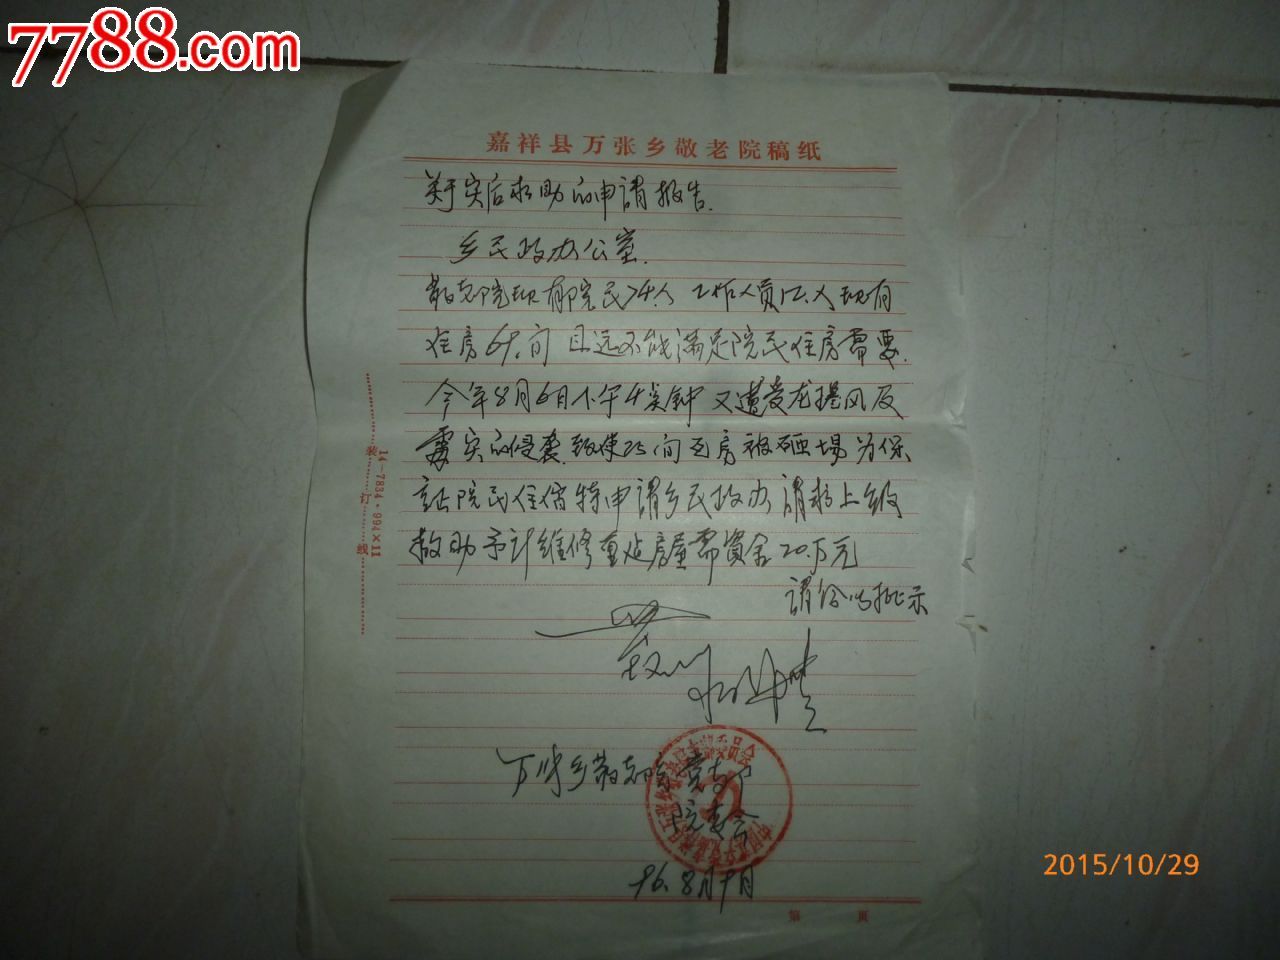 7788.com
嘉祥县万张乡敬老院稿纸
关于灾后求助的申请报告.
乡民政办公室.
敬老院现有院民74人 工作人员12人现有
住房69间 且远不能满足院民住房需要.
今年8月6日下午4点钟又遭受龙捲风及
雹灾的侵袭.致使25间瓦房被砸塌 为保
证院民住宿特申请乡民政办 请求上级
救助 予计维修重建房屋需资金20.万元
请给以批示
万张乡敬老院党支部
院委会
96.8月9日
14-7834·994×11
装订线
第 页
2015/10/29